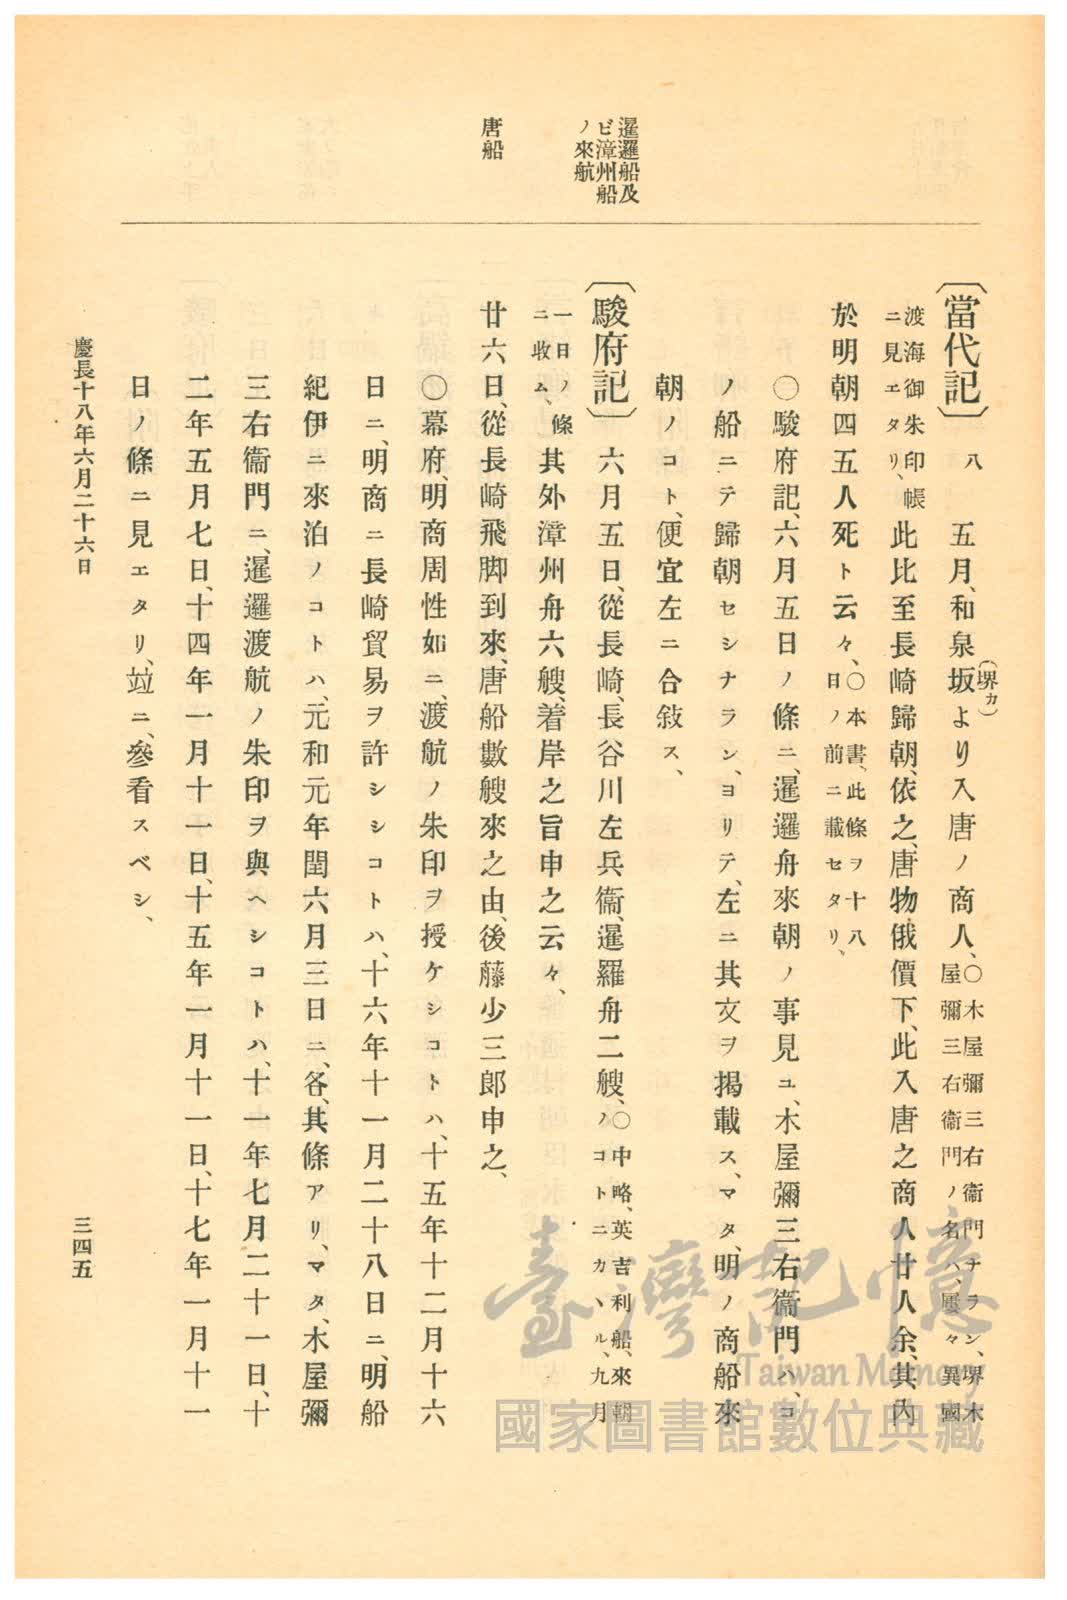 暹邏船及
ビ漳州船
ノ來航
唐船
〔當代記〕 八 五月、和泉坂より入唐ノ商人、
(堺カ)
○木屋彌三右衞門ナラン、堺木
屋彌三右衞門ノ名ハ、屢々異國
渡海御朱印帳
ニ見エタリ、
此比至長崎歸朝、依之、唐物俄價下、此入唐之商人廿人余、其內
於明朝四五人死ト云々、
○本書、此條ヲ十八
日ノ前ニ載セタリ、
○駿府記、六月五日ノ條ニ、暹邏舟來朝ノ事見ユ、木屋彌三右衞門ハ、コ
ノ船ニテ歸朝セシナラン、ヨリテ、左ニ其文ヲ揭載ス、マタ、明ノ商船來
朝ノコト、便宜左ニ合敍ス、
〔駿府記〕 六月五日、從長崎、長谷川左兵衞、暹羅舟二艘、
○中略、英吉利船、來朝
ノコトニカヽル、九月
一日ノ條
ニ收ム、
其外漳州舟六艘、着岸之旨申之云々、
廿六日、從長崎飛脚到來、唐船數艘來之由、後藤少三郎申之、
○幕府、明商周性如ニ、渡航ノ朱印ヲ授ケシコトハ、十五年十二月十六
日ニ、明商ニ長崎貿易ヲ許シシコトハ、十六年十一月二十八日ニ、明船
紀伊ニ來泊ノコトハ、元和元年閏六月三日ニ、各、其條アリ、マタ、木屋彌
三右衞門ニ、暹邏渡航ノ朱印ヲ與ヘシコトハ、十一年七月二十一日、十
二年五月七日、十四年一月十一日、十五年一月十一日、十七年一月十一
日ノ條ニ見エタリ、竝ニ、參看スベシ、
慶長十八年六月二十六日
三四五
臺灣記憶
Taiwan Memory
國家圖書館數位典藏